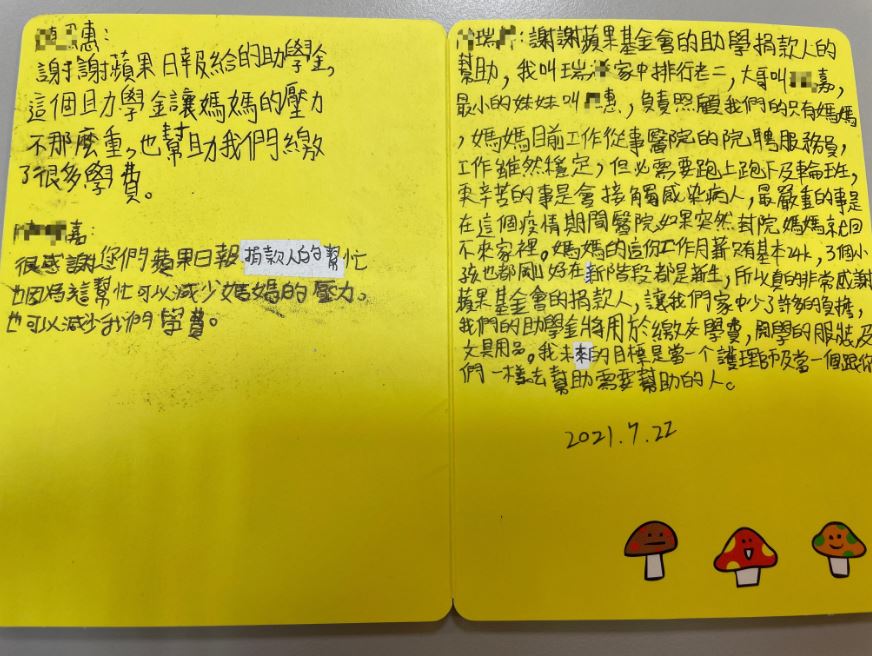 惠:
謝謝蘋果日報給的助學金,
這個助學金讓媽媽的壓力
不那麼重,也幫助我們繳
了很多學費。
嘉:
很感謝您們蘋果日報捐款人的幫忙
因為這幫忙可以減少媽媽的壓力。
也可以減少我們學費。
瑞:謝謝蘋果基金會的助學捐款人的
幫助,我叫瑞 家中排行老二,大哥叫 嘉,
最小的妹妹叫 惠,負責照顧我們的只有媽媽
,媽媽目前工作從事醫院的院聘服務員,
工作雖然穩定,但必需要跑上跑下及輪班,
更辛苦的事是會接觸感染病人,最嚴重的事是
在這個疫情期間醫院如果突然封院媽媽就回
不來家裡。媽媽的這份工作月薪只有基本24k,3個小
孩也都剛好在新階段都是新生,所以真的非常感謝
蘋果基金會的捐款人,讓我們家中少了許多的負擔,
我們的助學金將用於繳交學費,開學的服裝及
文具用品。我未來的目標是當一个護理師及當一個跟你
們一樣去幫助需要幫助的人。
2021.7.22